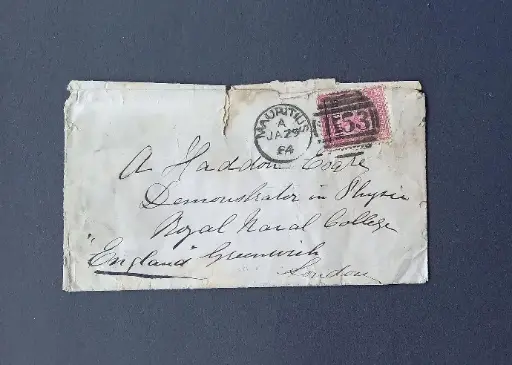 MAURITIUS
A
JA 29
84
B53
A Haddon Esqre
Demonstrator in Physics
Royal Naval College
"England" Greenwich
London